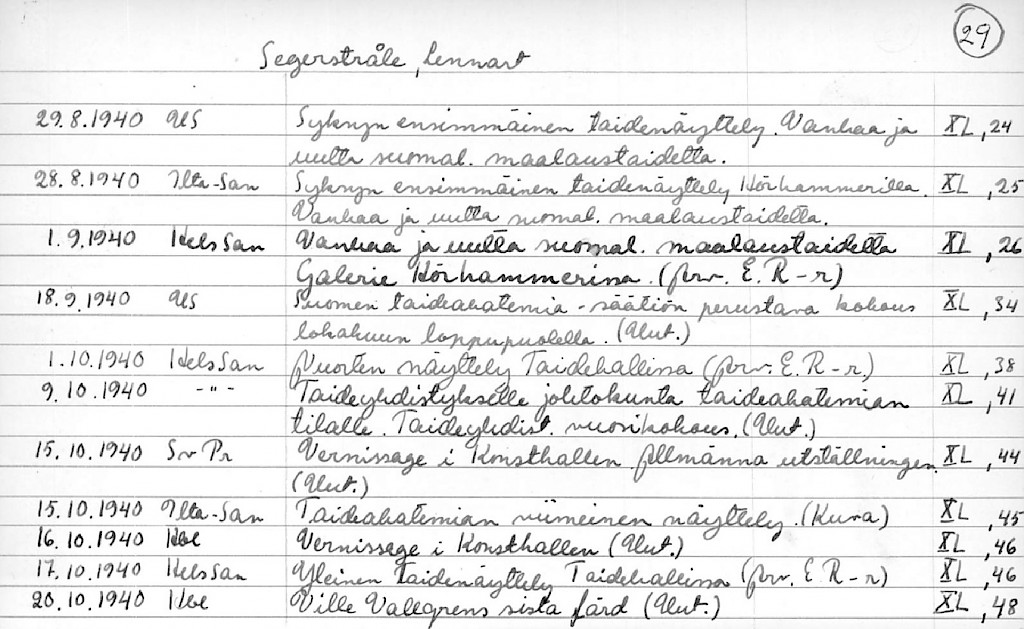 29
Segerstråle, Lennart
29.8.1940 US Syksyn ensimmäinen taidenäyttely. Vanhaa ja XL, 24
uutta suomal. maalaustaidetta.
28.8.1940 Ilta-San Syksyn ensimmäinen taidenäyttely Hörhammerilla. XL, 25
Vanhaa ja uutta suomal. maalaustaidetta.
1.9.1940 HelsSan Vanhaa ja uutta suomal. maalaustaidetta XL, 26
Galerie Hörhammerissa. (arv. E. R-r)
18.9.1940 US Suomen taideakatemia-säätiön perustava kokous XL, 34
lokakuun loppupuolella. (Uut.)
1.10.1940 HelsSan Vuorten näyttely Taidehallissa (arv. E. R-r.) XL, 38
9.10.1940 -"- Taideyhdistykselle johtokunta taideakatemian XL, 41
tilalle. Taideyhdist. vuosikokous. (Uut.)
15.10.1940 Sv Pr Vernissage i Konsthallen. Allmänna utställningen. XL, 44
(Uut.)
15.10.1940 Ilta-San Taideakatemian viimeinen näyttely. (Kuva) XL, 45
16.10.1940 Hbl Vernissage i Konsthallen (Uut.) XL, 46
17.10.1940 HelsSan Yleinen taidenäyttely Taidehallissa (arv. E. R-r) XL, 46
20.10.1940 Hbl Ville Vallgrens sista färd (Uut.) XL, 48